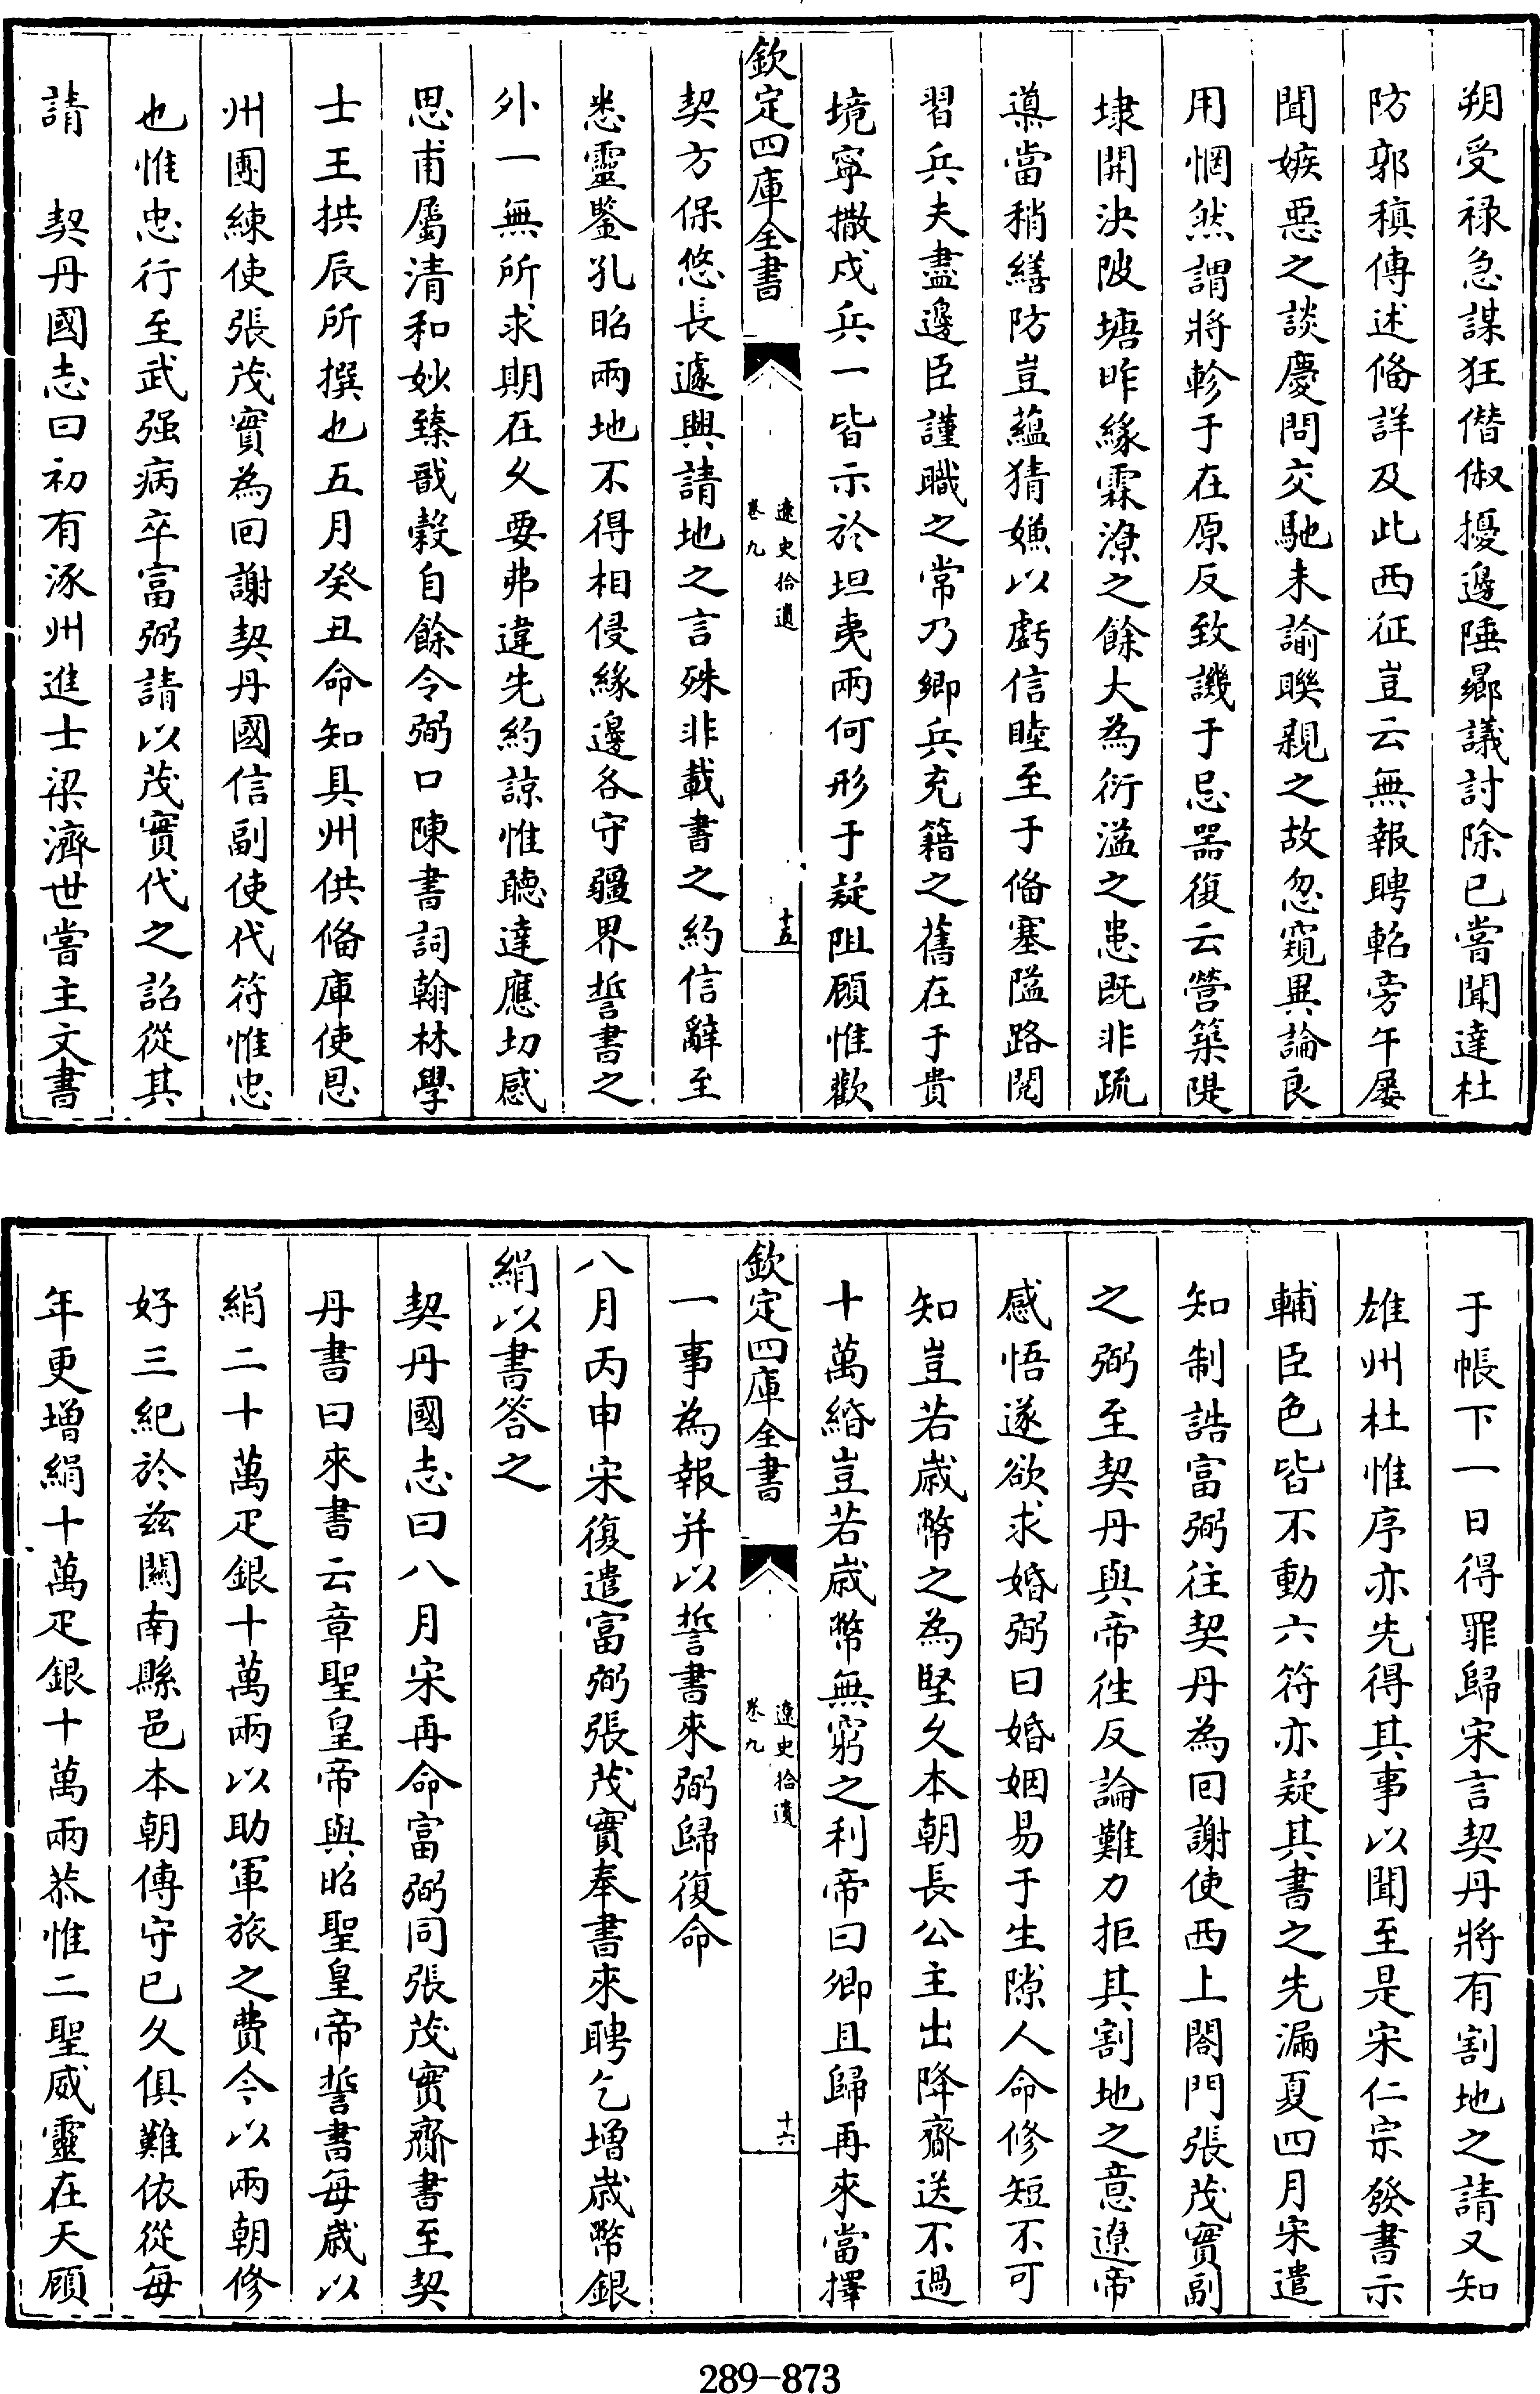 朔受禄急謀狂僭俶擾邊陲曏議討除已嘗聞達杜
防郭稹傳述俻詳及此西征豈云無報聘軺旁午屢
聞嫉惡之談慶問交馳未諭聨親之故忽窺異論良
用惘然謂將軫于在原反致譏于忌器復云營築隄
埭開決陂塘昨緣霖潦之餘大為衍溢之患既非疏
導當稍繕防豈藴猜嫌以虧信睦至于俻塞隘路閱
習兵夫盡邊臣謹職之常乃鄉兵充籍之舊在于貴
境寜撒戍兵一皆示於坦夷兩何形于疑阻顧惟歡
欽定四庫全書
遼史拾遺
卷九
十五
契方保悠長遽興請地之言殊非載書之約信辭至
悉靈鑒孔昭兩地不得相侵緣邊各守疆界誓書之
外一無所求期在久要弗違先約諒惟聽達應切感
思甫屬清和妙臻戩糓自餘令弼口陳書詞翰林學
士王拱辰所撰也五月癸丑命知具州供俻庫使恩
州團練使張茂實為回謝契丹國信副使代符惟忠
也惟忠行至武强病卒富弼請以茂實代之詔從其
請　契丹國志曰初有涿州進士梁濟世嘗主文書
于帳下一日得罪歸宋言契丹將有割地之請又知
雄州杜惟序亦先得其事以聞至是宋仁宗發書示
輔臣色皆不動六符亦疑其書之先漏夏四月宋遣
知制誥富弼往契丹為回謝使西上閤門張茂實副
之弼至契丹與帝徃反論難力拒其割地之意遼帝
感悟遂欲求婚弼曰婚姻易于生隙人命修短不可
知豈若歲幣之為堅久本朝長公主出降齎送不過
十萬緡豈若歲幣無窮之利帝曰卿且歸再來當擇
欽定四庫全書
遼史拾遺
卷九
十六
一事為報并以誓書來弼歸復命
八月丙申宋復遣富弼張茂實奉書來聘乞增歲幣銀
絹以書答之
契丹國志曰八月宋再命富弼同張茂實齎書至契
丹書曰來書云章聖皇帝與昭聖皇帝誓書每歲以
絹二十萬疋銀十萬兩以助軍旅之費今以兩朝修
好三紀於兹關南縣邑本朝傳守已久俱難依從每
年更增絹十萬疋銀十萬兩恭惟二聖威靈在天顧
289-873